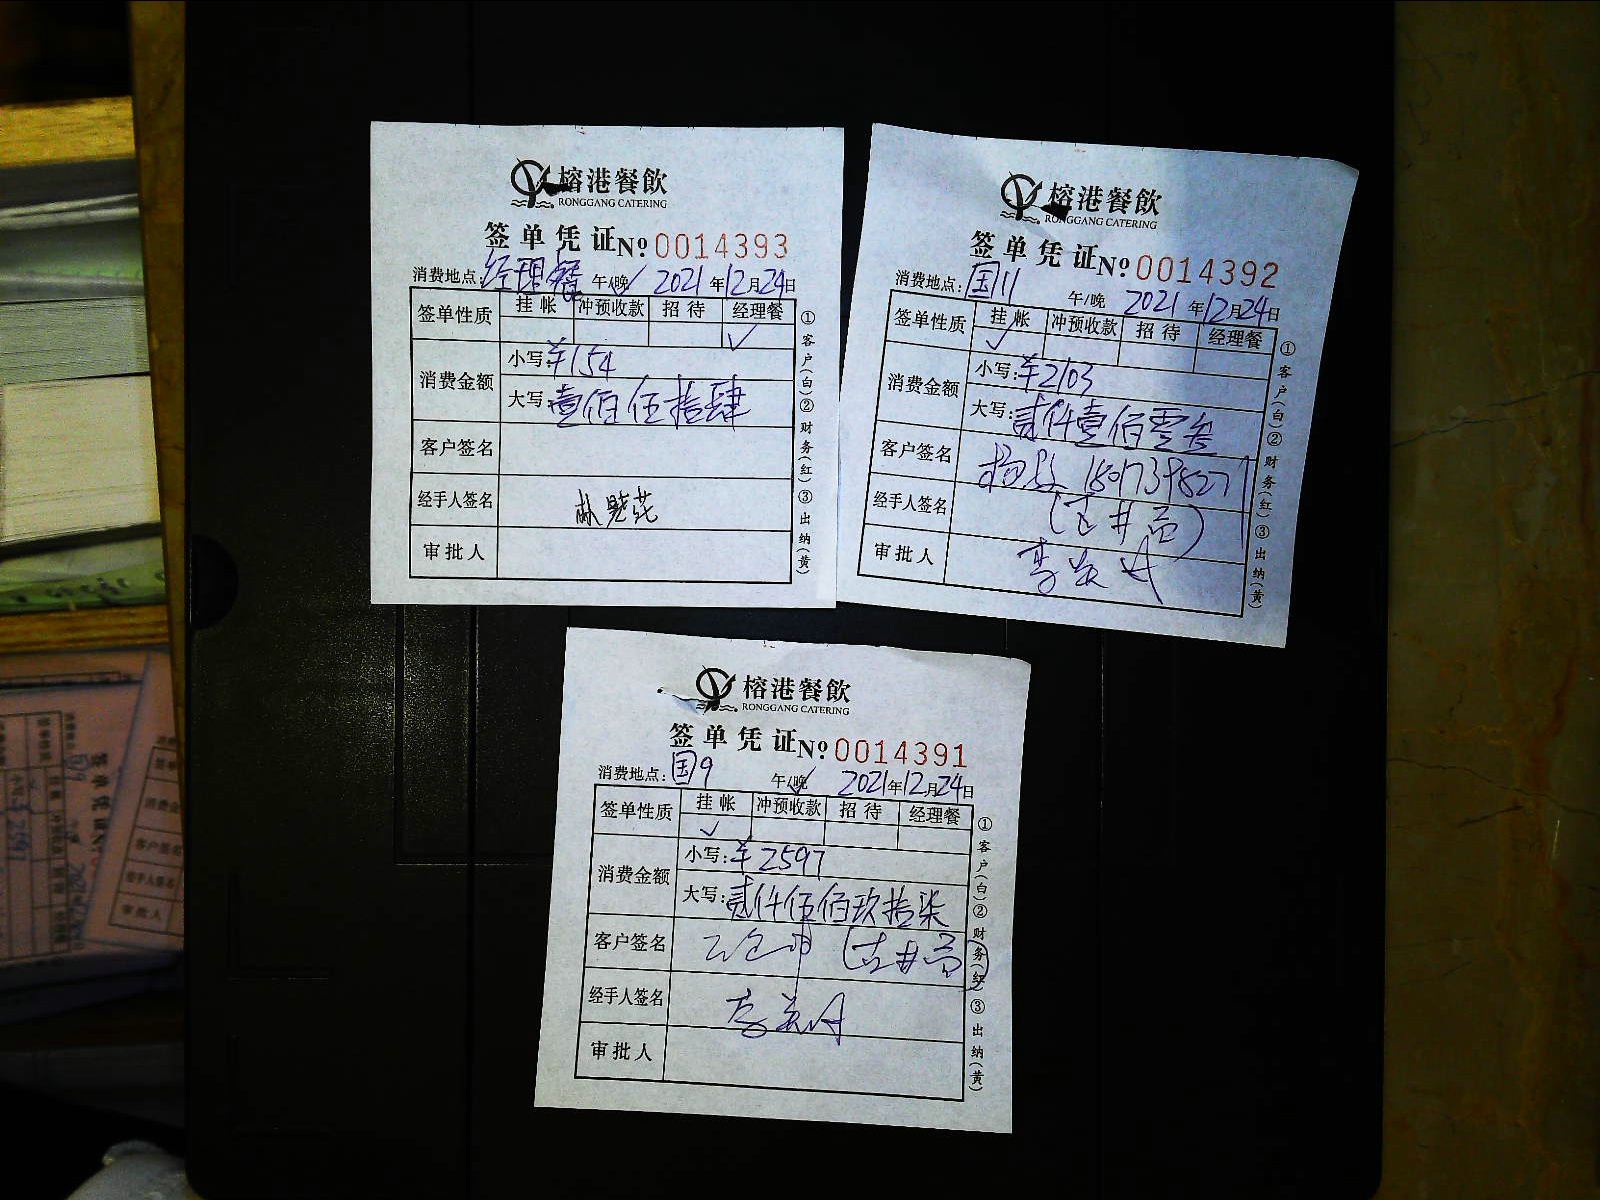 榕港餐飲
RONGGANG CATERING
签单凭证 № 0014393
消费地点: 经理餐 午/晚 2021年12月24日
签单性质 挂帐 冲预收款 招待 经理餐
✓
消费金额 小写: ¥154
大写: 壹佰伍拾肆
客户签名
经手人签名 林晓花
审批人
①客户(白)②财务(红)③出纳(黄)
榕港餐飲
RONGGANG CATERING
签单凭证 № 0014392
消费地点: 国11 午/晚 2021年12月24日
签单性质 挂帐 冲预收款 招待 经理餐
✓
消费金额 小写: ¥2103
大写: 贰仟壹佰零叁
客户签名
经手人签名 (古井贡)
审批人
①客户(白)②财务(红)③出纳(黄)
榕港餐飲
RONGGANG CATERING
签单凭证 № 0014391
消费地点: 国9 午/晚 2021年12月24日
签单性质 挂帐 冲预收款 招待 经理餐
✓
消费金额 小写: ¥2597
大写: 贰仟伍佰玖拾柒
客户签名 (古井贡)
经手人签名
审批人
①客户(白)②财务(红)③出纳(黄)